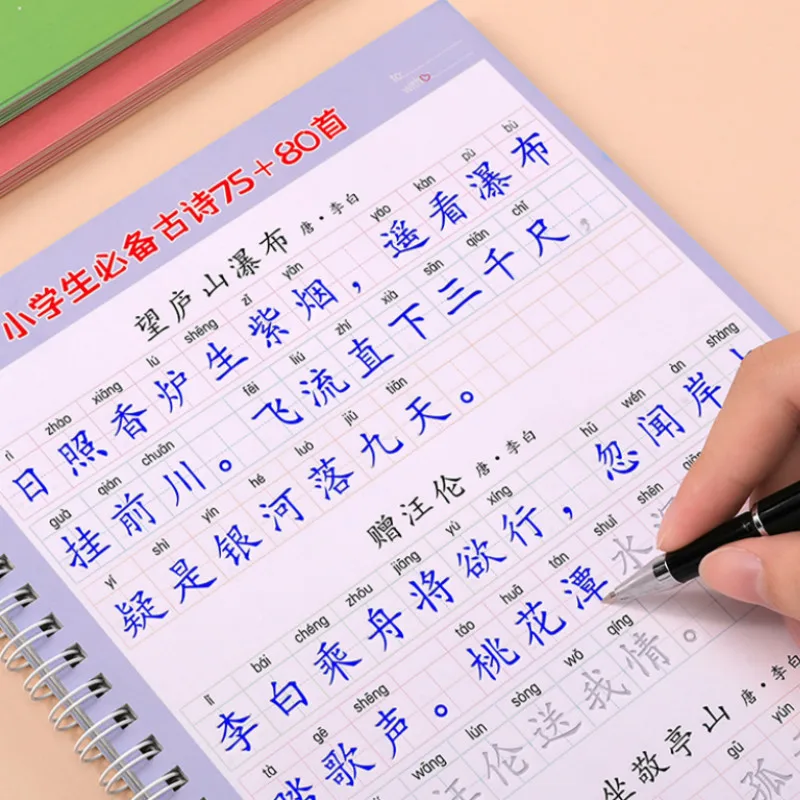 小学生必备古诗75+80首
望庐山瀑布 唐·李白
rì zhào xiāng lú shēng zǐ yān yáo kàn pù bù
日照香炉生紫烟，遥看瀑布
guà qián chuān fēi liú zhí xià sān qiān chǐ
挂前川。飞流直下三千尺，
yí shì yín hé luò jiǔ tiān
疑是银河落九天。
赠汪伦 唐·李白
lǐ bái chéng zhōu jiāng yù xíng hū wén àn shàng
李白乘舟将欲行，忽闻岸
tà gē shēng táo huā tán shuǐ shēn
踏歌声。桃花潭水深
wāng lún sòng wǒ qíng
汪伦送我情。
坐敬亭山 唐·李白
gū yún
孤